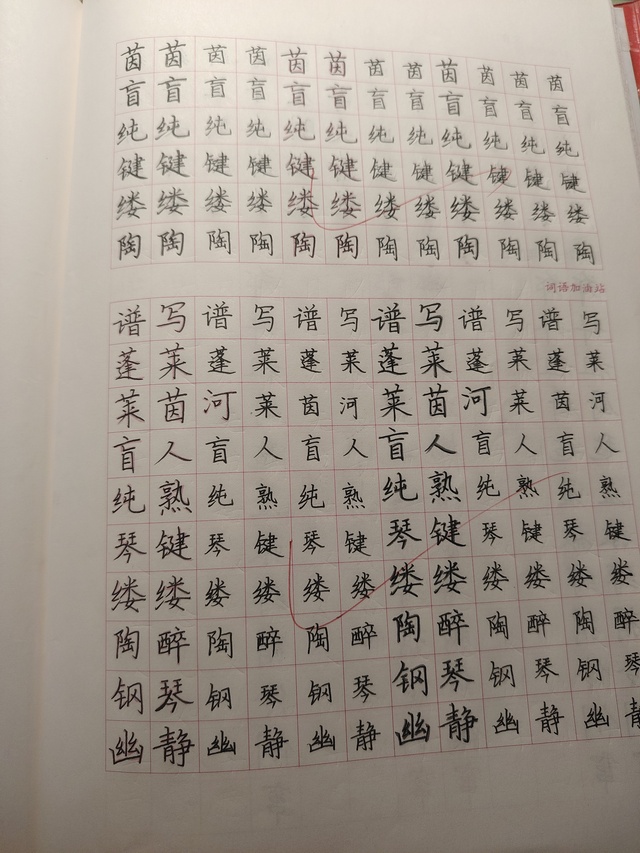 茵茵茵茵茵茵茵茵茵茵茵茵
盲盲盲盲盲盲盲盲盲盲盲盲
纯纯纯纯纯纯纯纯纯纯纯纯
键键键键键键键键键键键键
缕缕缕缕缕缕缕缕缕缕缕缕
陶陶陶陶陶陶陶陶陶陶陶陶
词语加油站
谱写谱写谱写谱写谱写谱写
蓬莱蓬莱蓬莱蓬莱蓬莱蓬莱
莱茵河莱茵河莱茵河莱茵河
盲人盲人盲人盲人盲人盲人
纯熟纯熟纯熟纯熟纯熟纯熟
琴键琴键琴键琴键琴键琴键
缕缕缕缕缕缕缕缕缕缕缕缕
陶醉陶醉陶醉陶醉陶醉陶醉
钢琴钢琴钢琴钢琴钢琴钢琴
幽静幽静幽静幽静幽静幽静